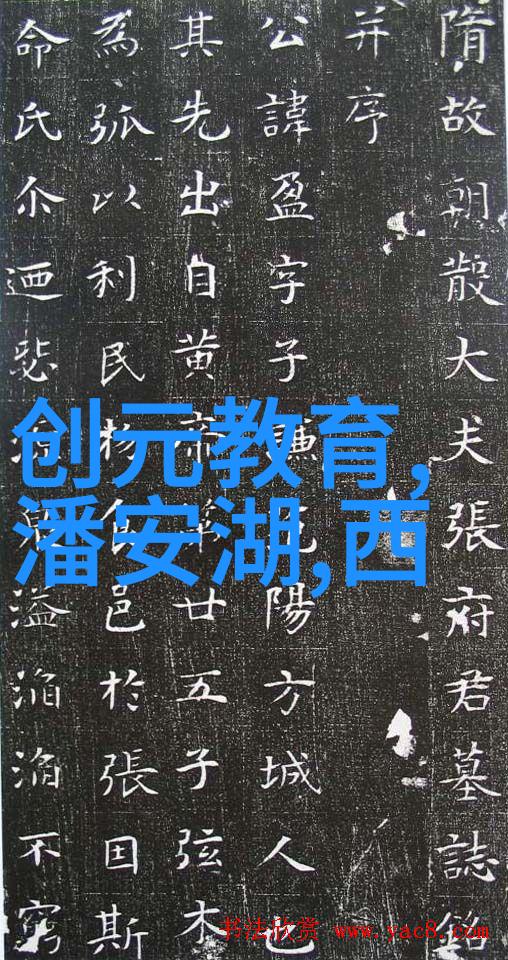 隋故朝散大夫張府君墓誌銘
并序
公諱盈字子謙陽方城人也
其先出自黃帝廿五子弦木
為弧以利民邑於張因斯
命氏尒迺溢滔滔不窮
创元教育,
潘安湖,西
书法欣赏 www.yac8.com